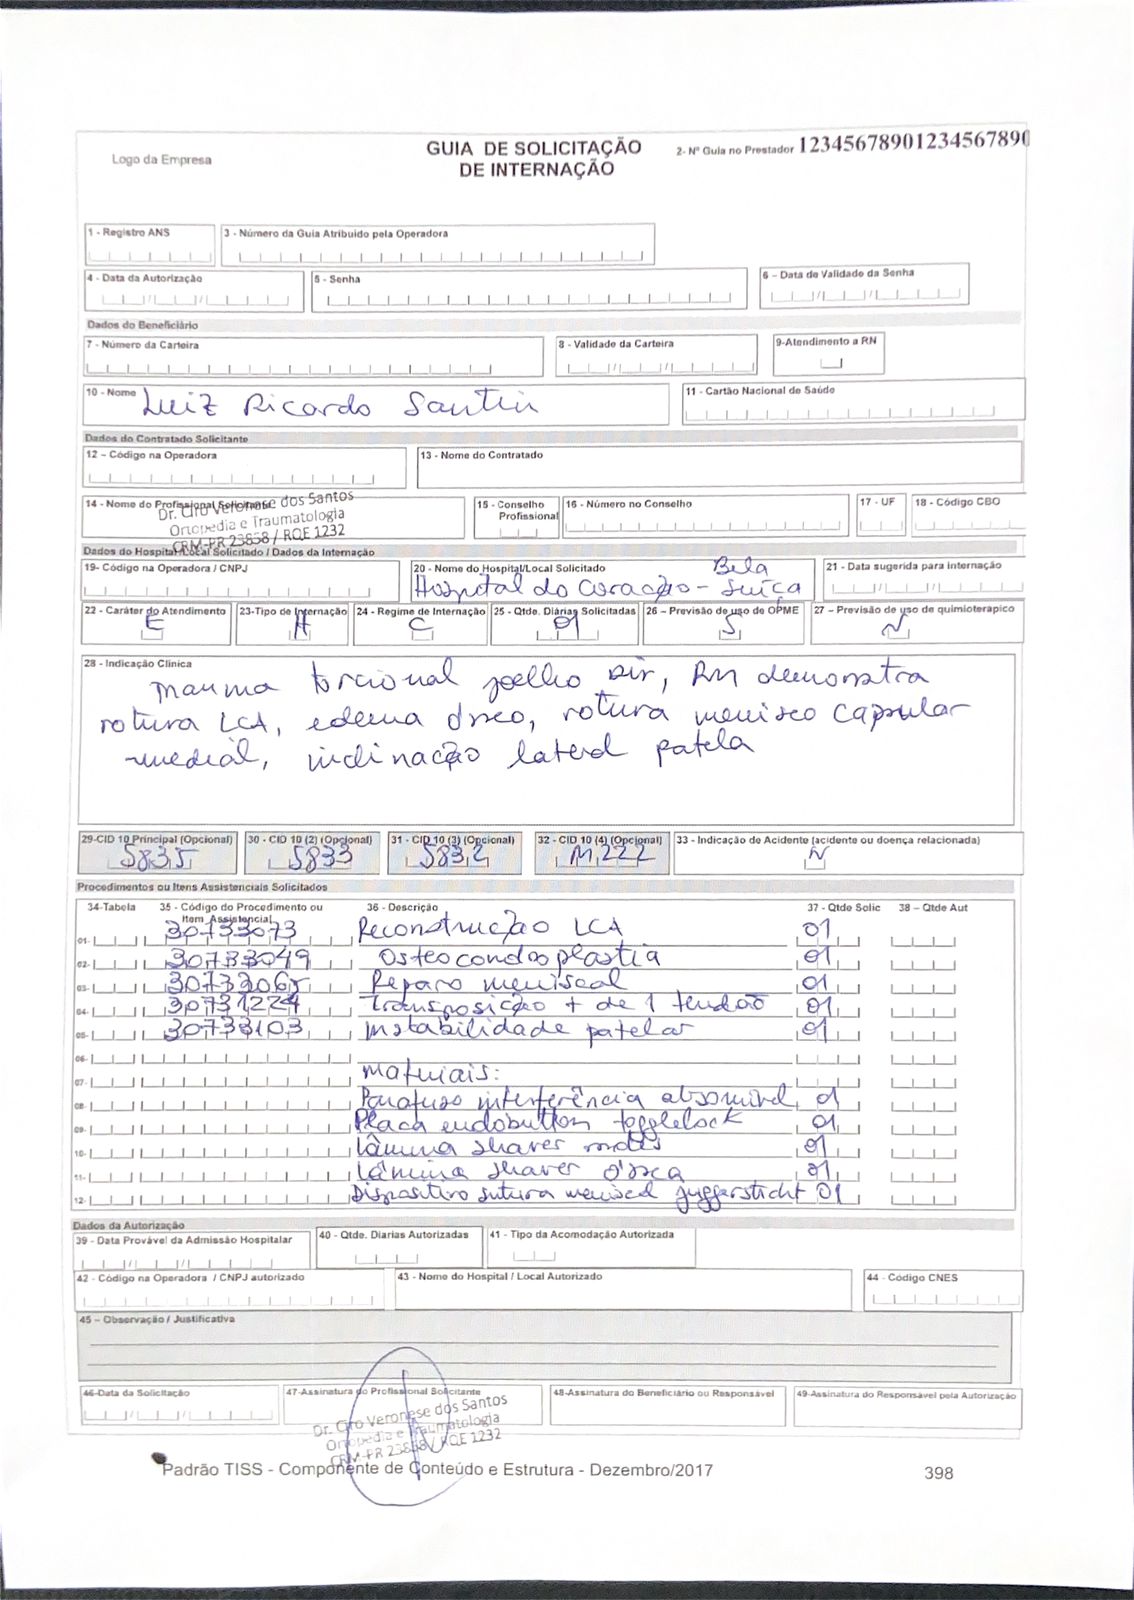 Logo da Empresa
GUIA DE SOLICITAÇÃO
DE INTERNAÇÃO
2- Nº Guia no Prestador 12345678901234567890
1 - Registro ANS
3 - Número da Guia Atribuido pela Operadora
4 - Data da Autorização
5 - Senha
6 – Data de Validade da Senha
Dados do Beneficiário
7 - Número da Carteira
8 - Validade da Carteira
9-Atendimento a RN
10 - Nome Luiz Ricardo Santin
11 - Cartão Nacional de Saúde
Dados do Contratado Solicitante
12 – Código na Operadora
13 - Nome do Contratado
14 - Nome do Profissional Solicitante
Dr. Ciro Veronese dos Santos
Ortopedia e Traumatologia
CRM-PR 23858 / RQE 1232
15 - Conselho
Profissional
16 - Número no Conselho
17 - UF
18 - Código CBO
Dados do Hospital /Local Solicitado / Dados da Internação
19- Código na Operadora / CNPJ
20 - Nome do Hospital/Local Solicitado
Hospital do Coração - Bela Suíça
21 - Data sugerida para internação
22 - Caráter do Atendimento
E
23-Tipo de Internação
24 - Regime de Internação
C
25 - Qtde. Diárias Solicitadas
01
26 – Previsão de uso de OPME
S
27 – Previsão de uso de quimioterápico
N
28 - Indicação Clínica
Trauma torcional joelho Dir, RM demonstra
rotura LCA, edema ósseo, rotura menisco capsular
medial, inclinação lateral patela
29-CID 10 Principal (Opcional)
S835
30 - CID 10 (2) (Opcional)
S833
31 - CID 10 (3) (Opcional)
S832
32 - CID 10 (4) (Opcional)
M222
33 - Indicação de Acidente (acidente ou doença relacionada)
N
Procedimentos ou Itens Assistenciais Solicitados
34-Tabela
35 - Código do Procedimento ou
Item Assistencial
36 - Descrição
37 - Qtde Solic
38 – Qtde Aut
01- 30733073 Reconstrução LCA 01
02- 30733049 Osteocondroplastia 01
03- 30733065 Reparo meniscal 01
04- 30731224 Transposição + de 1 tendão 01
05- 30733103 Instabilidade patelar 01
06-
07- Materiais:
08- Parafuso interferência absorvível 01
09- Placa endobutton togglelock 01
10- Lâmina shaver 01
11- Lâmina shaver óssea 01
12- Dispositivo sutura meniscal juggerstitcht 01
Dados da Autorização
39 - Data Provável da Admissão Hospitalar
40 - Qtde. Diarias Autorizadas
41 - Tipo da Acomodação Autorizada
42 - Código na Operadora / CNPJ autorizado
43 - Nome do Hospital / Local Autorizado
44 - Código CNES
45 – Observação / Justificativa
46-Data da Solicitação
47-Assinatura do Profissional Solicitante
48-Assinatura do Beneficiário ou Responsável
49-Assinatura do Responsável pela Autorização
Dr. Ciro Veronese dos Santos
Ortopedia e Traumatologia
CRM-PR 23858 / RQE 1232
Padrão TISS - Componente de Conteúdo e Estrutura - Dezembro/2017
398